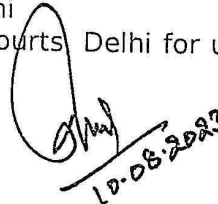 hi
ourts Delhi for u
10.08.2023